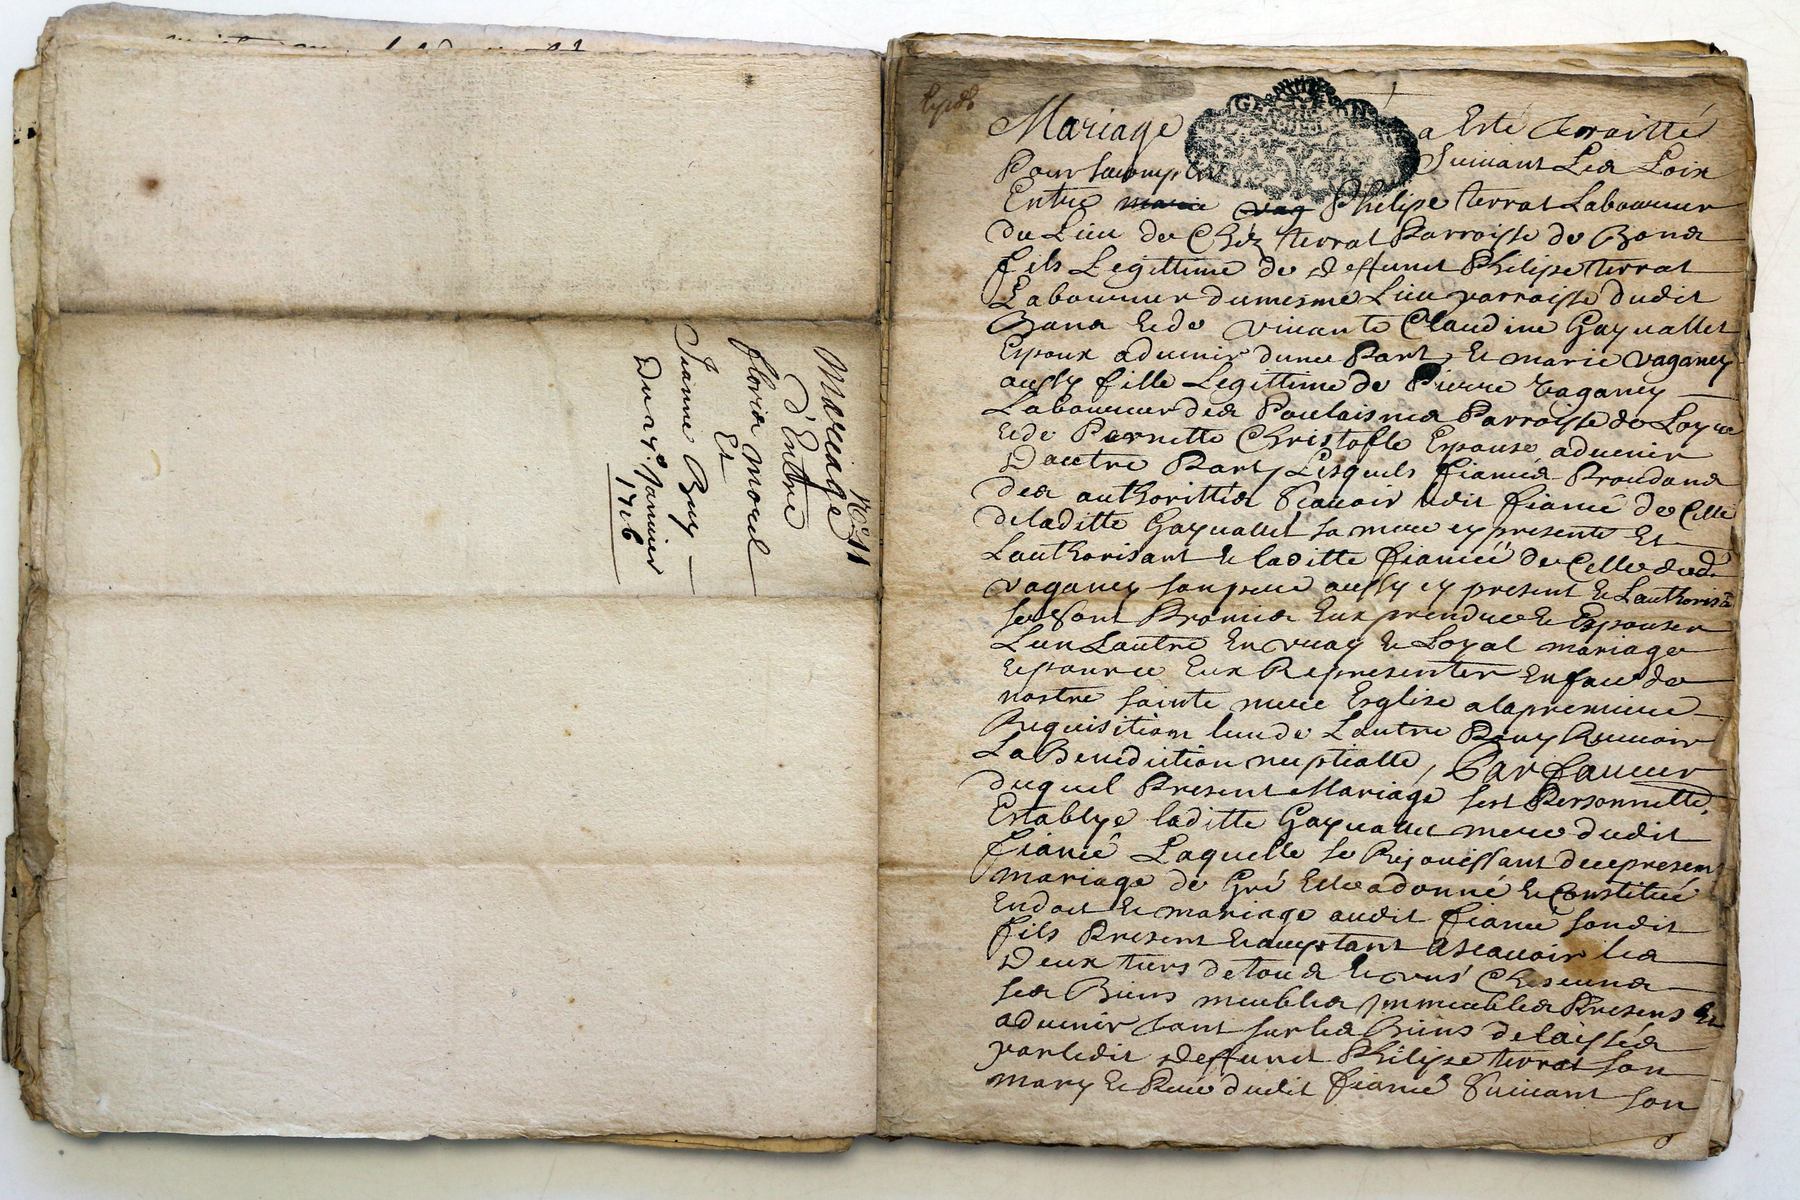 N.° 11
Mariage
d'Entre
florin morel
Et
Jeanne Buy
Du 24.e Janvier
1716
Mariage a Esté traitté
Pour Suivant Les Loix
Entre marie vag Philipe terrat Laboureur
du Lieu de Chéz terrat Parroisse de Bona
fils Legittime de deffunct Philipe terrat
Laboureur dumesme Lieu parroisse dudit
Bona Et de vivante Claudine Gayuallet
Espoux aduenir dune Part, Et marie vaganey
aussy fille Legittime de Pierre Vaganey
Laboureur des Parroisse de
Et de Pernette Christofle Espouse aduenir
Dautre Part, Lesquels fiancés
des authorittés Scauoir ledit fiancé de Celle
deladitte Gayuallet sa mere cy presente Et
Lauthorisant Et laditte fiancée de Celle dud.
vaganey son pere aussy cy present Et Lauthorist
se sont Promis Eux prendre Et Espouser
Lun Lautre En vray Et Loyal mariage
Et pource Eux Representer En face de
nostre sainte mere Esglise alapremiere
Requisition lunde Lautre Pour Receuoir
La Benediction nuptialle, Par faueur
duquel Present Mariage sest Personnelle.
Establye laditte Gayuallet mere dudit
fiancé Laquelle se Rejouissant decepresent
mariage de Gré Elle adonné Et Constitué
Endot Et mariage audit fiancé sondit
fils Present Et acceptant Ascauoir les
Deux tiers detous Et Chascuns
ses Biens meubles Jmmeubles Presens Et
aduenir tant surles Biens delaissés
parledit deffunct Philipe terrat son
mary Et Pere dudit fiancé Suiuant son